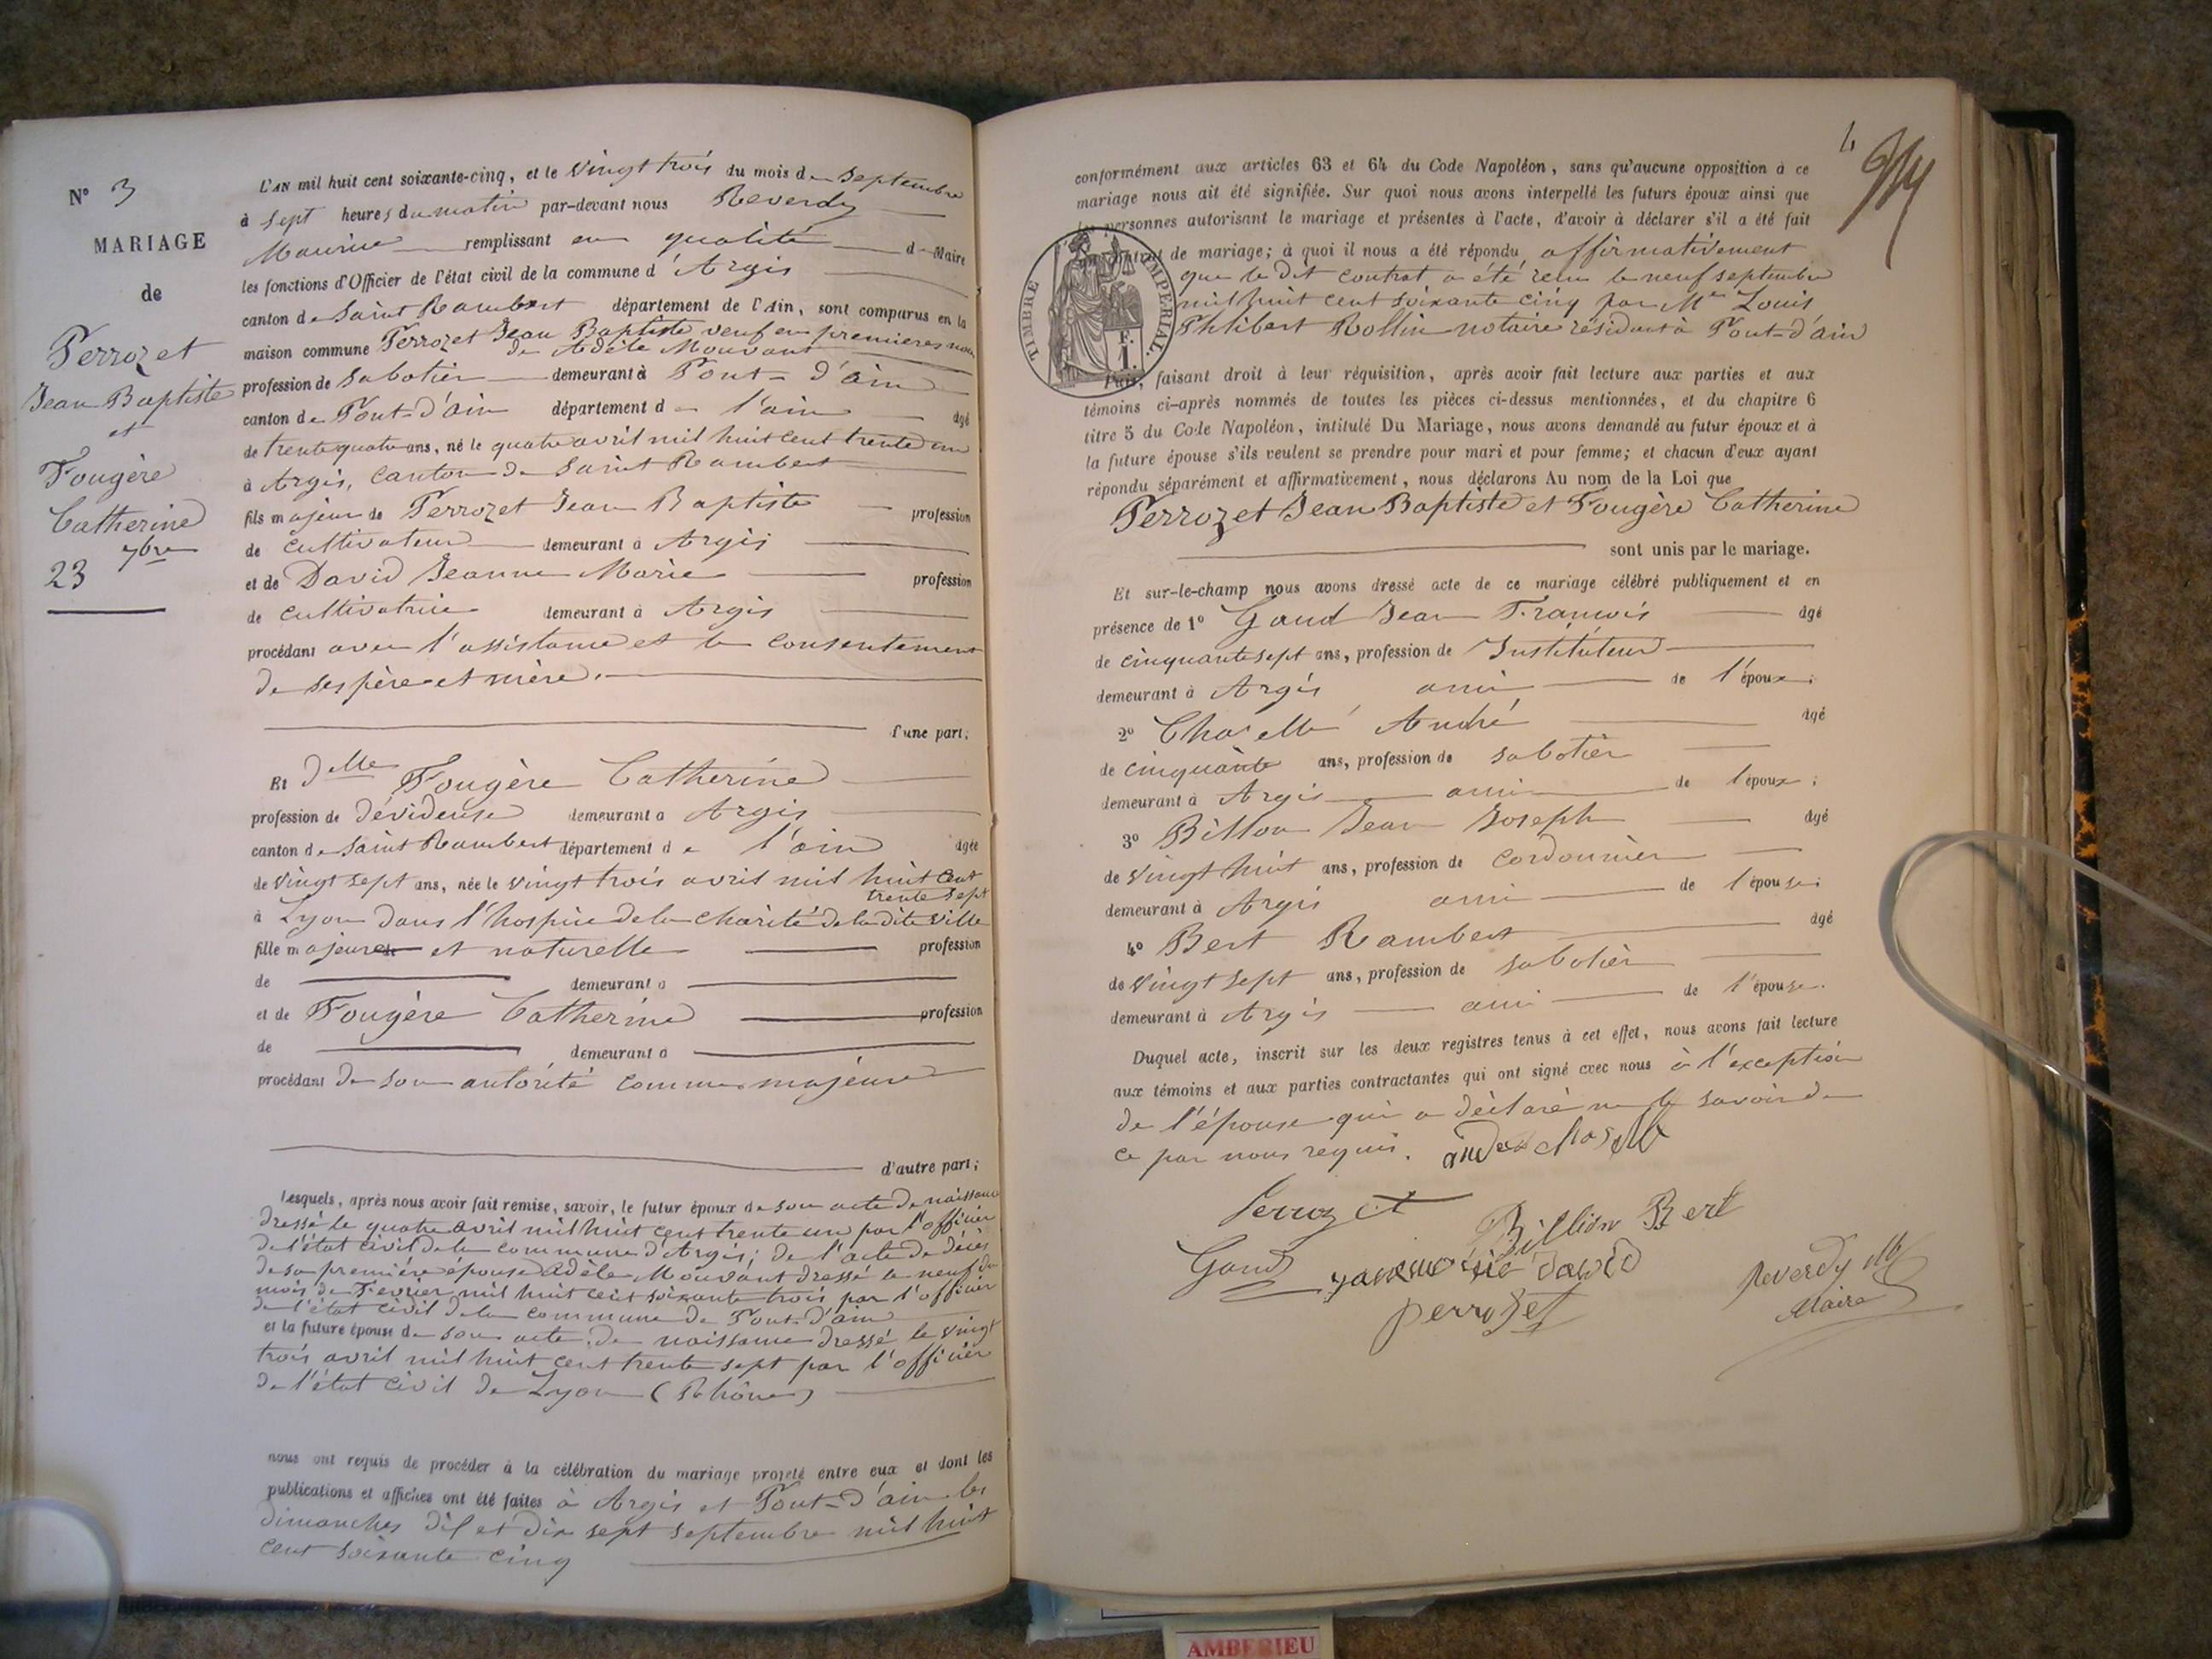 N° 3
MARIAGE
de
Perrozet
Jean Baptiste
et
Fougère
Catherine
23 7bre
L'AN mil huit cent soixante-cinq, et le vingt trois du mois de septembre
à sept heures du matin par-devant nous Reverdy
Maurice remplissant en qualité de Maire
les fonctions d'Officier de l'état civil de la commune d'Argis
canton de Saint Rambert département de l'Ain, sont comparus en la
maison commune Perrozet Jean Baptiste veuf en premieres noces
de Adèle Mouvant
profession de sabotier demeurant à Pont-d'ain
canton de Pont-d'ain département de l'ain âgé
de trente quatre ans, né le quatre avril mil huit cent trente un
à Argis, canton de Saint Rambert
fils majeur de Perrozet Jean Baptiste profession
de cultivateur demeurant à Argis
et de David Jeanne Marie profession
de cultivatrice demeurant à Argis
procédant avec l'assistance et le consentement
de ses père et mère.
d'une part;
Et Delle Fougère Catherine
profession de dévideuse demeurant à Argis
canton de Saint Rambert département de l'ain âgée
de vingt sept ans, née le vingt trois avril mil huit cent
trente sept
à Lyon dans l'hospice de la charité de la dite ville
fille majeure et naturelle profession
de demeurant à
et de Fougère Catherine profession
de demeurant à
procédant de son autorité comme majeure
d'autre part;
Lesquels, après nous avoir fait remise, savoir, le futur époux de son acte de naissance
dressé le quatre avril mil huit cent trente un par l'officier
de l'état civil de la commune d'Argis; de l'acte de décès
de sa première épouse Adèle Mouvant dressé le neuf du
mois de Fevrier mil huit cent soixante trois par l'officier
de l'état civil de la commune de Pont-d'ain
et la future épouse de son acte de naissance dressé le vingt
trois avril mil huit cent trente sept par l'officier
de l'état civil de Lyon (Rhône)
nous ont requis de procéder à la célébration du mariage projeté entre eux et dont les
publications et affiches ont été faites à Argis et Pont-d'ain les
dimanches dix et dix sept septembre mil huit
cent soixante cinq
4
conformément aux articles 63 et 64 du Code Napoléon, sans qu'aucune opposition à ce
mariage nous ait été signifiée. Sur quoi nous avons interpellé les futurs époux ainsi que
les personnes autorisant le mariage et présentes à l'acte, d'avoir à déclarer s'il a été fait
un contrat de mariage; à quoi il nous a été répondu affirmativement
que le dit contrat a été reçu le neuf septembre
mil huit cent soixante cinq par Me Louis
Philibert Rollin notaire résidant à Pont-d'ain
TIMBRE IMPERIAL.
F.
1.
Puis, faisant droit à leur réquisition, après avoir fait lecture aux parties et aux
témoins ci-après nommés de toutes les pièces ci-dessus mentionnées, et du chapitre 6
titre 5 du Code Napoléon, intitulé Du Mariage, nous avons demandé au futur époux et à
la future épouse s'ils veulent se prendre pour mari et pour femme; et chacun d'eux ayant
répondu séparément et affirmativement, nous déclarons Au nom de la Loi que
Perrozet Jean Baptiste et Fougère Catherine
sont unis par le mariage.
Et sur-le-champ nous avons dressé acte de ce mariage célébré publiquement et en
présence de 1° Gaud Jean François âgé
de cinquante sept ans, profession de Instituteur
demeurant à Argis ami de l'époux;
2° André âgé
de cinquante ans, profession de sabotier
demeurant à Argis ami de l'époux;
3° Billon Jean Joseph âgé
de vingt huit ans, profession de cordonnier
demeurant à Argis ami de l'épouse;
4° Bert Rambert âgé
de vingt sept ans, profession de sabotier
demeurant à Argis ami de l'épouse.
Duquel acte, inscrit sur les deux registres tenus à cet effet, nous avons fait lecture
aux témoins et aux parties contractantes qui ont signé avec nous à l'exception
de l'épouse qui a déclaré ne le savoir de
ce par nous requis.
Perrozet
Billion Bert
Gaud David
perrozet
Reverdy M
Maire
AMBERIEU